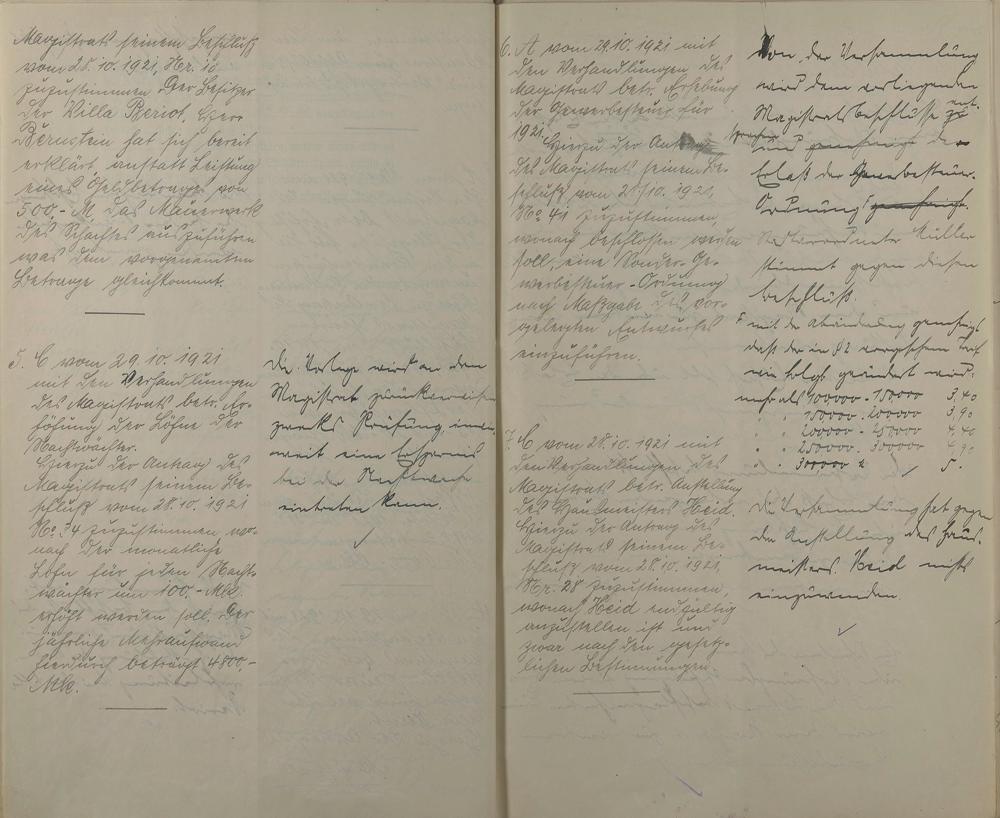 Magistrats seinem Beschluß
vom 28.10.1921, Nr. 10
zuzustimmen. Der Besitzer
der Villa Beriot, Herr
Bernstein hat sich bereit
erklärt, anstatt Leistung
eines Geldbetrages von
500,- M, das Mauerwerk
des Schachtes auszuführen
was dem vorgenannten
Betrage gleichkommt.
5. C vom 29.10.1921
mit den Verhandlungen
des Magistrats betr. Er-
höhung der Löhne der
Nachtwächter.
Hierzu der Antrag des
Magistrats seinem Be-
schluß vom 28.10.1921
No. 34 zuzustimmen wo-
nach der monatliche
Lohn für jeden Nacht-
wächter um 100.- Mk.
erhöht werden soll. Der
jährliche Mehraufwand
hierdurch beträgt 4800,-
Mk.
Die Vorlage wird an den
Magistrat zurückverwiesen
zwecks Prüfung, inwie-
weit eine Ersparnis
bei der Nachtwache
eintreten kann.
6. A vom 29.10.1921 mit
den Verhandlungen des
Magistrats betr. Erhebung
der Gewerbesteuer für
1921.
Hierzu der Antrag
des Magistrats seinem Be-
schluß vom 28.10.1921,
No. 41 zuzustimmen,
wonach beschlossen werden
soll, eine Sonder-Ge-
werbesteuer-Ordnung
nach Maßgabe des vor-
gelegten Entwurfes
einzuführen.
Von der Versammlung
wird dem vorliegenden
Magistratsbeschlusse zu ent-
sprochen und genehmigt der
Erlaß der Gewerbesteuer-
Ordnung genehmigt.
Stadtverordneter Müller
stimmt gegen diesen
Beschluß.
F mit der Abänderung genehmigt
daß der in § 2 vorgesehene Tarif
wie folgt geändert wird:
mehr als 100000 - 150000 3,40
" " 150000 - 200000 3,90
" " 200000 - 250000 4,40
" " 250000 - 300000 4,90
" " 300000 M 5.-
7. C vom 28.10.1921 mit
den Verhandlungen des
Magistrats betr. Anstellung
des Hausmeisters Heid.
Hierzu der Antrag des
Magistrats seinem Be-
schluß vom 28.10.1921,
Nr. 28 zuzustimmen,
wonach Heid endgültig
anzustellen ist und
zwar nach den gesetz-
lichen Bestimmungen.
Die Versammlung hat gegen
die Anstellung des Haus-
meisters Heid nichts
einzuwenden.